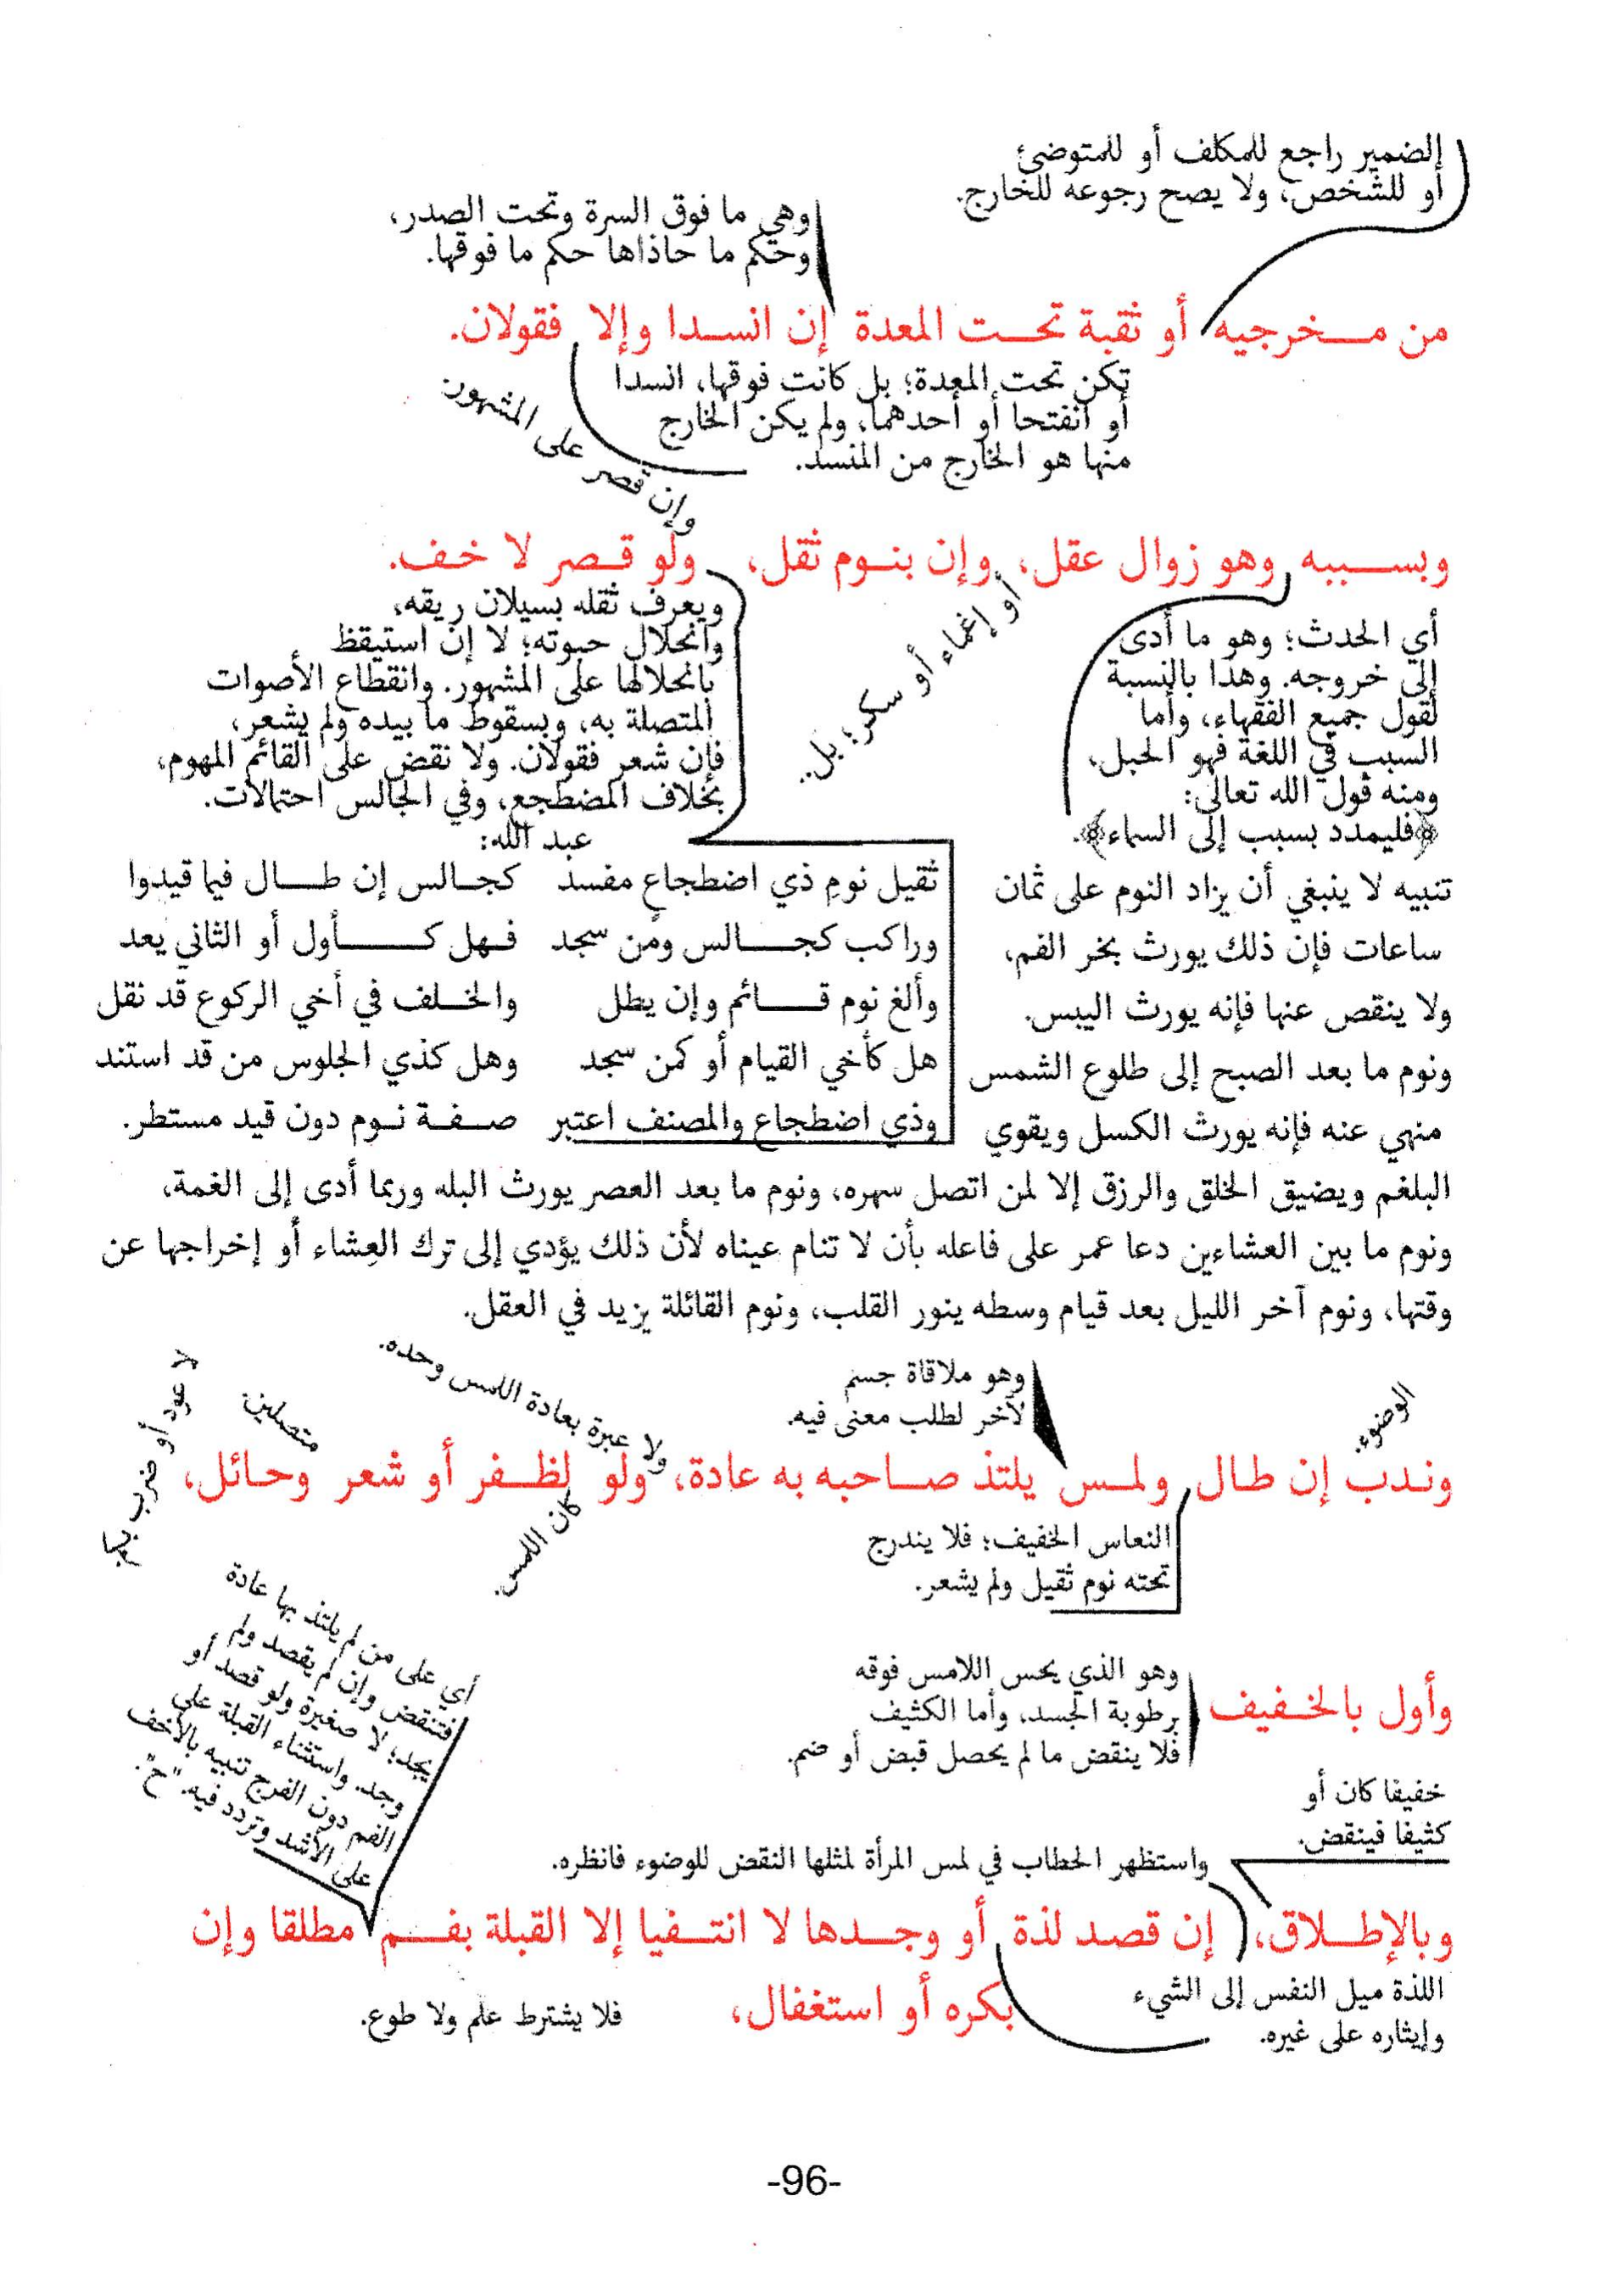 الضمير راجع للمكلف أو للمتوضئ
أو للشخص، ولا يصح رجوعه للخارج.
وهي ما فوق السرة وتحت الصدر،
وحكم ما حاذاها حكم ما فوقها.
من مخرجيه أو ثقبة تحت المعدة إن انسدا وإلا فقولان.
تكن تحت المعدة؛ بل كانت فوقها، انسدا
أو انفتحا أو أحدهما، ولم يكن الخارج
منها هو الخارج من المنسد.
وإن قصر على المشهور.
وبسببه وهو زوال عقل، وإن بنوم ثقل، ولو قصر لا خف.
أو إغماء أو سكر؛ بل.
أي الحدث؛ وهو ما أدى
إلى خروجه. وهذا بالنسبة
لقول جميع الفقهاء، وأما
السبب في اللغة فهو الحبل،
ومنه قول الله تعالى:
﴿فليمدد بسبب إلى السماء﴾.
ويعرف ثقله بسيلان ريقه،
وانحلال حبوته؛ لا إن استيقظ
بانحلالها على المشهور. وانقطاع الأصوات
المتصلة به، وبسقوط ما بيده ولم يشعر،
فإن شعر فقولان. ولا نقض على القائم المهوم،
بخلاف المضطجع، وفي الجالس احتمالات.
عبد الله:
ثقيل نومِ ذي اضطجاعٍ مفسد كجالس إن طال فيما قيدوا
وراكب كجالس ومن سجد فهل كأول أو الثاني يعد
وألغ نوم قائم وإن يطل والخلف في أخي الركوع قد نقل
هل كأخي القيام أو كمن سجد وهل كذي الجلوس من قد استند
وذي اضطجاع والمصنف اعتبر صفة نوم دون قيد مستطر.
تنبيه لا ينبغي أن يزاد النوم على ثمان
ساعات فإن ذلك يورث بخر الفم،
ولا ينقص عنها فإنه يورث اليبس.
ونوم ما بعد الصبح إلى طلوع الشمس
منهي عنه فإنه يورث الكسل ويقوي
البلغم ويضيق الخلق والرزق إلا لمن اتصل سهره، ونوم ما بعد العصر يورث البله وربما أدى إلى الغمة،
ونوم ما بين العشاءين دعا عمر على فاعله بأن لا تنام عيناه لأن ذلك يؤدي إلى ترك العِشاء أو إخراجها عن
وقتها، ونوم آخر الليل بعد قيام وسطه ينور القلب، ونوم القائلة يزيد في العقل.
الوضوء.
وهو ملاقاة جسم
لآخر لطلب معنى فيه.
ولا عبرة بعادة اللمس وحده.
متصلين
لا عود أو ضرب بكم
وندب إن طال ولمس يلتذ صاحبه به عادة، ولو لظفر أو شعر وحائل،
النعاس الخفيف؛ فلا يندرج
تحته نوم ثقيل ولم يشعر.
كان اللمس.
وأول بالخفيف
وهو الذي يحس اللامس فوقه
برطوبة الجسد، وأما الكثيف
فلا ينقض ما لم يحصل قبض أو ضم.
خفيفا كان أو
كثيفا فينقض.
واستظهر الحطاب في لمس المرأة لمثلها النقض للوضوء فانظره.
أي على من لم يلتذ بها عادة
فتنقض وإن لم يقصد ولم
يجد؛ لا صغيرة ولو قصد أو
وجد. واستثناء القبلة على
الفم دون الفرج تنبيه بالأخف
على الأشد وتردد فيه. "ح".
وبالإطلاق، إن قصد لذة أو وجدها لا انتفيا إلا القبلة بفم مطلقا وإن
اللذة ميل النفس إلى الشيء
وإيثاره على غيره.
بكره أو استغفال،
فلا يشترط علم ولا طوع.
-96-